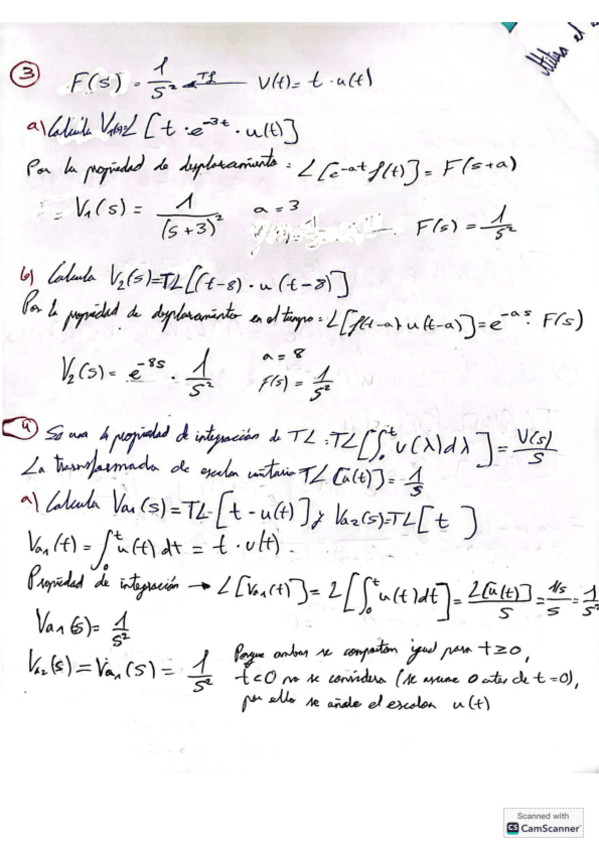 Utiliza el
③ F(s) = 1/s² ←TL— V(t) = t · u(t)
a) Calcula V₁(s)=L [t · e^-3t · u(t)]
Por la propiedad de desplazamiento = L[e^-at f(t)] = F(s+a)
= V₁(s) = 1/(s+3)² a = 3 F(s) = 1/s²
b) Calcula V₂(s)=TL[(t-8) · u(t-8)]
Por la propiedad de desplazamiento en el tiempo = L[f(t-a) u(t-a)] = e^-as · F(s)
V₂(s) = e^-8s · 1/s² a = 8 F(s) = 1/s²
④ Se usa la propiedad de integración de TL : TL[∫₀^t v(λ)dλ] = V(s)/s
La transformada de escalon unitario TL[u(t)] = 1/s
a) Calcula Va1(s) = TL[t - u(t)] y Va2(s)=TL[t ]
Va1(t) = ∫₀^t u(t) dt = t · u(t)
Propiedad de integración → L[Va1(t)] = L[∫₀^t u(t) dt] = L[u(t)]/s = 1/s/s = 1/s²
Va1(s) = 1/s²
Va2(s) = Va1(s) = 1/s² Porque ambas se comportan igual para t ≥ 0,
t<0 no se considera (se asume 0 antes de t = 0),
por ello se añade el escalon u(t)
Scanned with
CS CamScanner